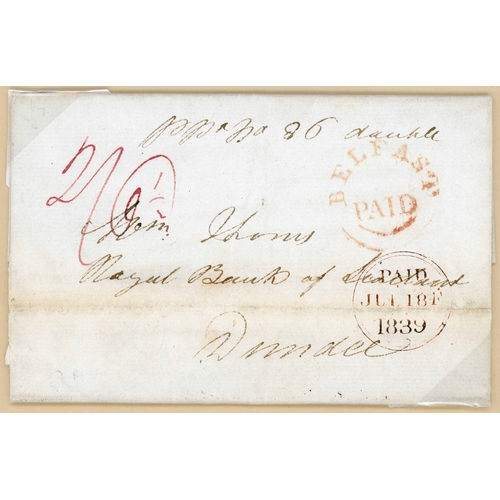 PPd No 86 double
BELFAST
PAID
2/0 ½
Thoms
Royal Bank of Scotland
PAID
JU 18
1839
Dundee